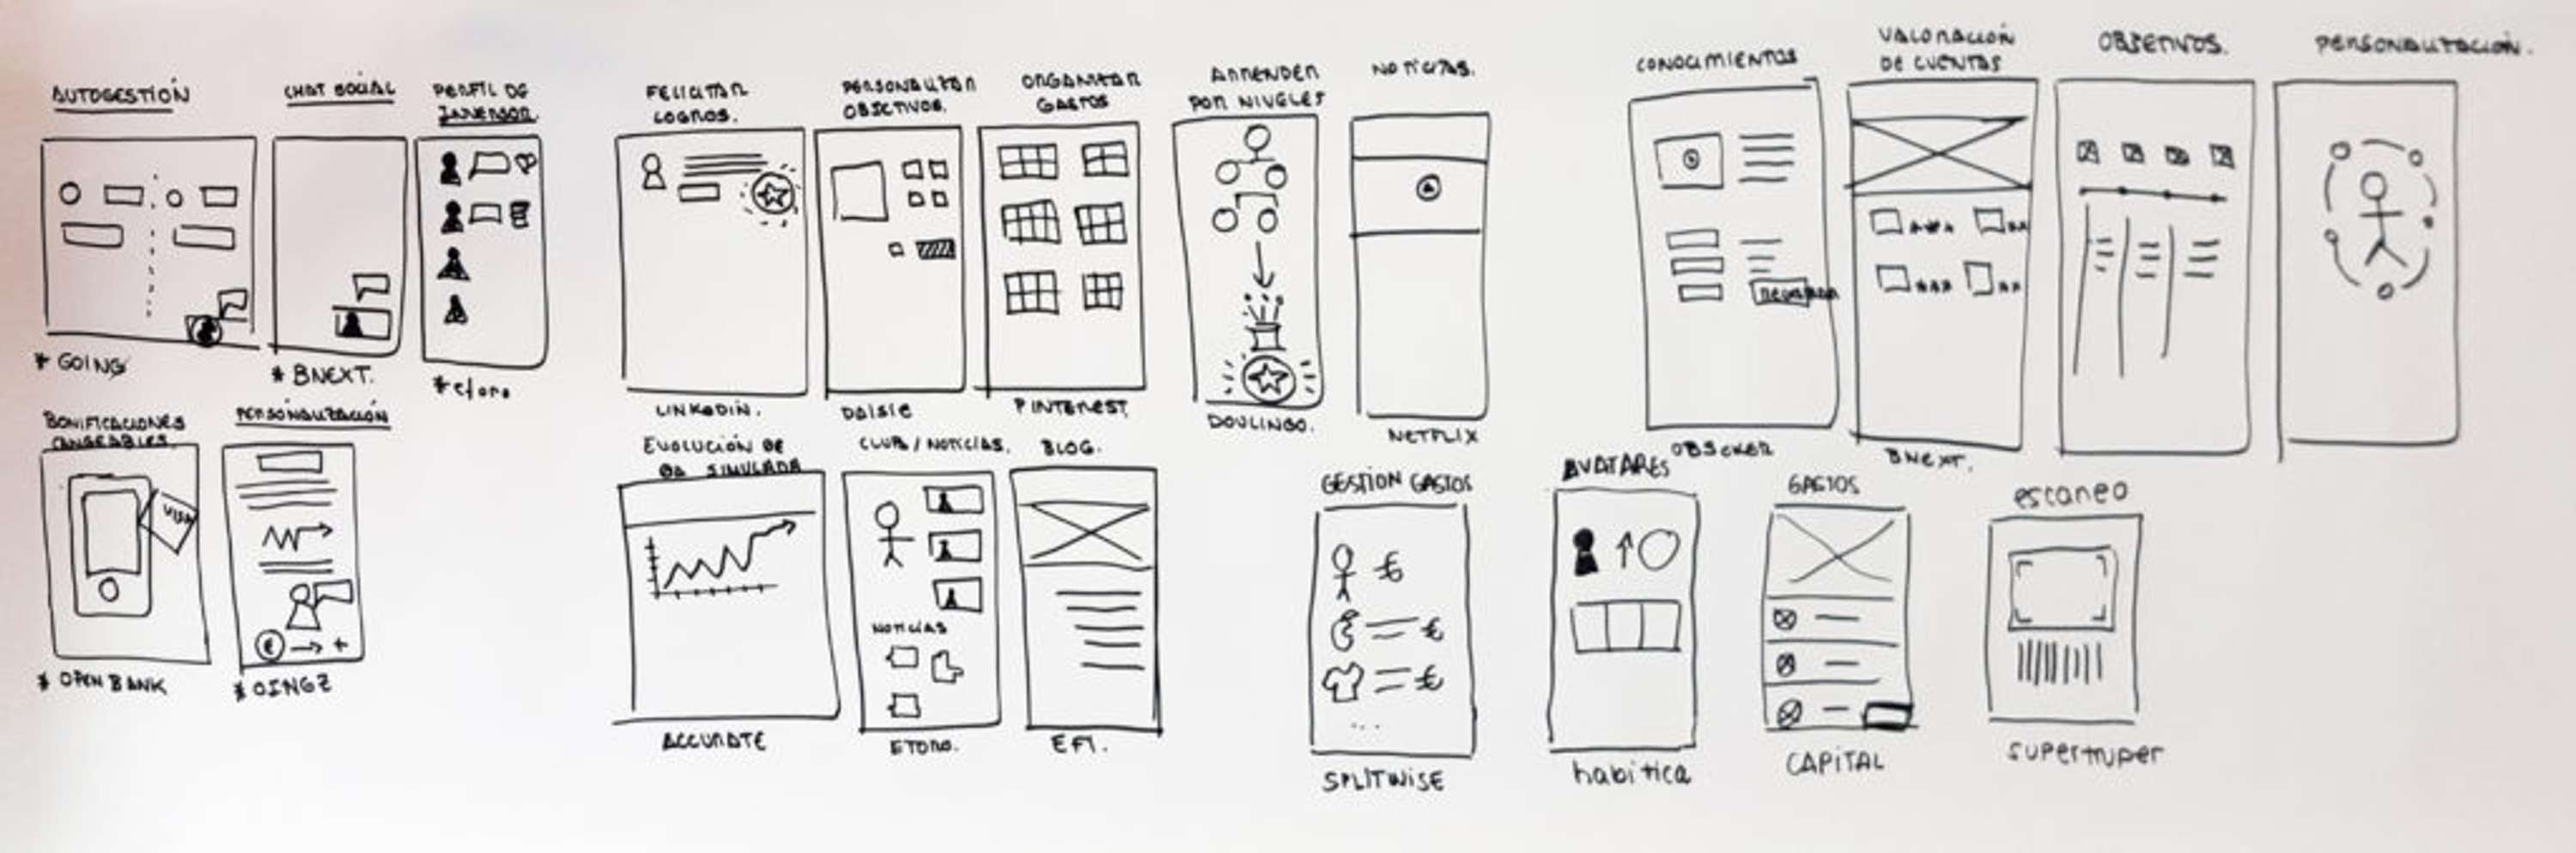 AUTOGESTIÓN
CHAT SOCIAL
PERFIL DE
INVERSOR.
* GOING
* BNEXT.
* etoro
BONIFICACIONES
CANGEABLES
PERSONALIZACIÓN
VISA
* OPEN BANK
* OINGZ
FELICITAR
LOGROS.
PERSONALIZAR
OBJETIVOS.
ORGANIZAR
GASTOS
APRENDER
POR NIVELES
NOTICIAS.
LINKEDIN.
DAISIE
PINTEREST.
DOULINGO.
NETFLIX
EVOLUCIÓN DE
SIMULADA
CLUB / NOTICIAS.
BLOG.
NOTICIAS
ACCURATE
ETORO.
EFI.
CONOCIMIENTOS
VALORACIÓN
DE CUENTAS
OBJETIVOS.
PERSONALIZACIÓN.
BNEXT.
GESTIÓN GASTOS
AVATARES
GASTOS
escaneo
€
€
€
...
SPLITWISE
habitica
CAPITAL
supertruper